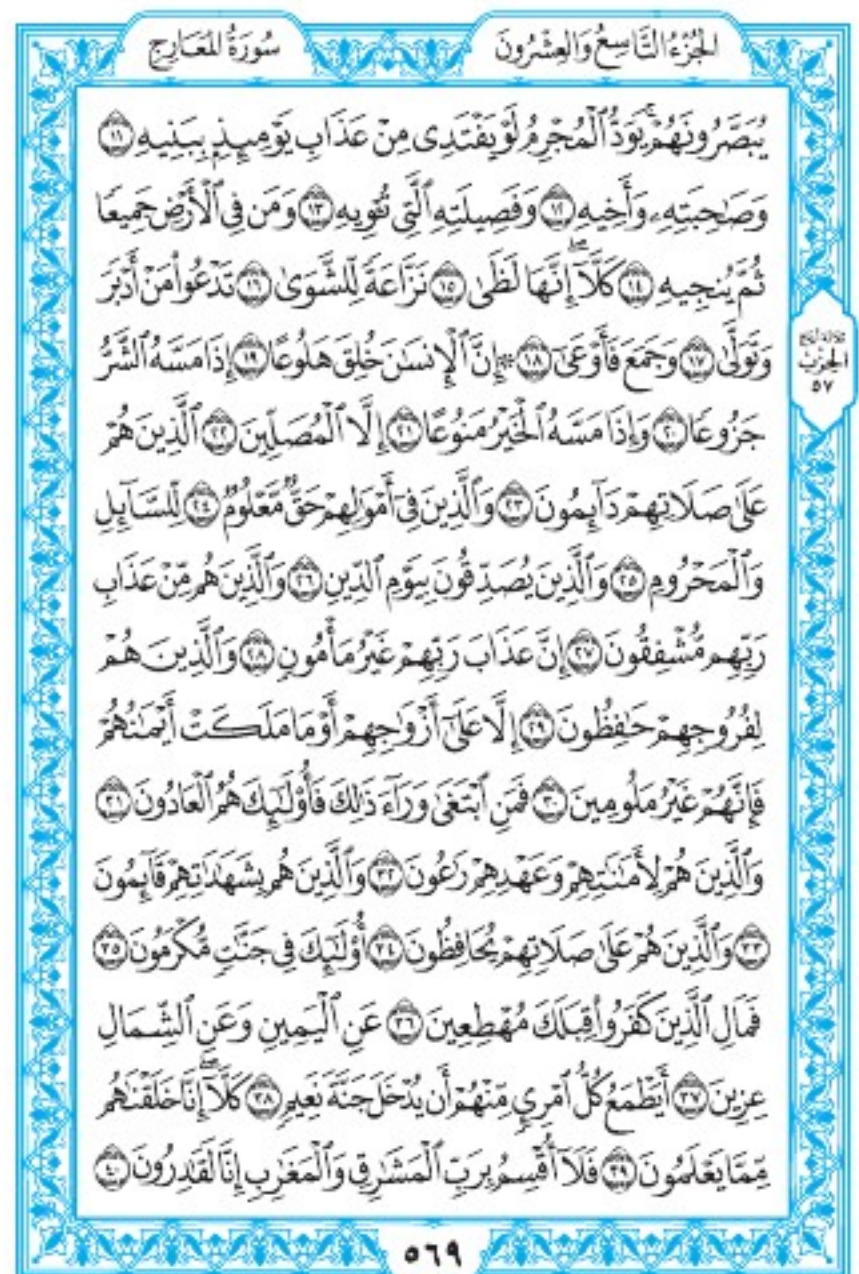 الجُزْءُ التَّاسِعُ وَالعِشْرُونَ
سُورَةُ المَعَارِجِ
يُبَصَّرُونَهُمْۚ يَوَدُّ ٱلْمُجْرِمُ لَوْ يَفْتَدِى مِنْ عَذَابِ يَوْمِئِذٍۭ بِبَنِيهِ ١١
وَصَٰحِبَتِهِۦ وَأَخِيهِ ١٢ وَفَصِيلَتِهِ ٱلَّتِى تُـْٔوِيهِ ١٣ وَمَن فِى ٱلْأَرْضِ جَمِيعًا
ثُمَّ يُنجِيهِ ١٤ كَلَّآۖ إِنَّهَا لَظَىٰ ١٥ نَزَّاعَةً لِّلشَّوَىٰ ١٦ تَدْعُوا۟ مَنْ أَدْبَرَ
وَتَوَلَّىٰ ١٧ وَجَمَعَ فَأَوْعَىٰٓ ١٨ ۞ إِنَّ ٱلْإِنسَٰنَ خُلِقَ هَلُوعًا ١٩ إِذَا مَسَّهُ ٱلشَّرُّ
جَزُوعًا ٢٠ وَإِذَا مَسَّهُ ٱلْخَيْرُ مَنُوعًا ٢١ إِلَّا ٱلْمُصَلِّينَ ٢٢ ٱلَّذِينَ هُمْ
عَلَىٰ صَلَاتِهِمْ دَآئِمُونَ ٢٣ وَٱلَّذِينَ فِىٓ أَمْوَٰلِهِمْ حَقٌّ مَّعْلُومٌ ٢٤ لِّلسَّآئِلِ
وَٱلْمَحْرُومِ ٢٥ وَٱلَّذِينَ يُصَدِّقُونَ بِيَوْمِ ٱلدِّينِ ٢٦ وَٱلَّذِينَ هُم مِّنْ عَذَابِ
رَبِّهِم مُّشْفِقُونَ ٢٧ إِنَّ عَذَابَ رَبِّهِمْ غَيْرُ مَأْمُونٍ ٢٨ وَٱلَّذِينَ هُمْ
لِفُرُوجِهِمْ حَٰفِظُونَ ٢٩ إِلَّا عَلَىٰٓ أَزْوَٰجِهِمْ أَوْ مَا مَلَكَتْ أَيْمَٰنُهُمْ
فَإِنَّهُمْ غَيْرُ مَلُومِينَ ٣٠ فَمَنِ ٱبْتَغَىٰ وَرَآءَ ذَٰلِكَ فَأُو۟لَٰٓئِكَ هُمُ ٱلْعَادُونَ ٣١
وَٱلَّذِينَ هُمْ لِأَمَٰنَٰتِهِمْ وَعَهْدِهِمْ رَٰعُونَ ٣٢ وَٱلَّذِينَ هُم بِشَهَٰدَٰتِهِمْ قَآئِمُونَ
٣٣ وَٱلَّذِينَ هُمْ عَلَىٰ صَلَاتِهِمْ يُحَافِظُونَ ٣٤ أُو۟لَٰٓئِكَ فِى جَنَّٰتٍ مُّكْرَمُونَ ٣٥
فَمَالِ ٱلَّذِينَ كَفَرُوا۟ قِبَلَكَ مُهْطِعِينَ ٣٦ عَنِ ٱلْيَمِينِ وَعَنِ ٱلشِّمَالِ
عِزِينَ ٣٧ أَيَطْمَعُ كُلُّ ٱمْرِئٍ مِّنْهُمْ أَن يُدْخَلَ جَنَّةَ نَعِيمٍ ٣٨ كَلَّآۖ إِنَّا خَلَقْنَٰهُم
مِّمَّا يَعْلَمُونَ ٣٩ فَلَآ أُقْسِمُ بِرَبِّ ٱلْمَشَٰرِقِ وَٱلْمَغَٰرِبِ إِنَّا لَقَٰدِرُونَ ٤٠
الحِزْب
٥٧
٥٦٩